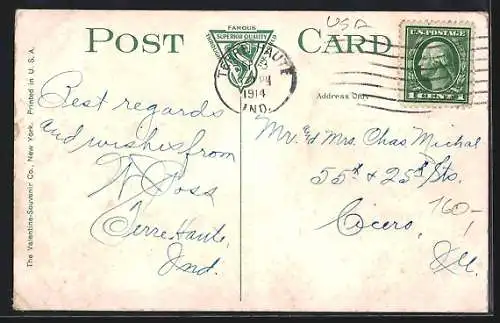 USA
POST CARD
FAMOUS
SUPERIOR QUALITY
TERRE HAUTE
1914
IND.
U.S. POSTAGE
1 CENT 1
Address Only
Best regards
and wishes from
Terre Haute,
Ind.
Mr. & Mrs. Chas Michal
55th & 25th Sts.
160-
Cicero,
Ill.
The Valentine-Souvenir Co., New York. Printed in U. S. A.